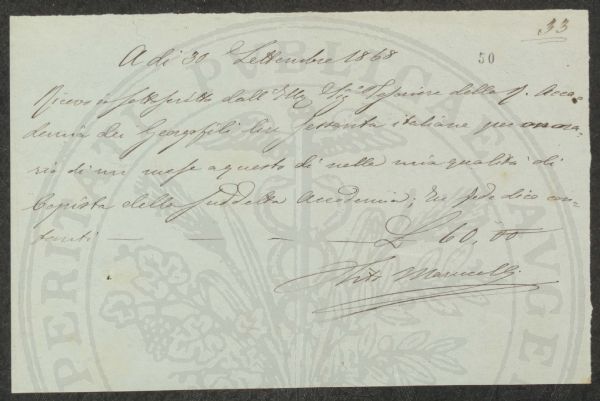 33
A dì 30 Settembre 1868
50
Ricevo io sottoscritto dall' Ill. Sig. Tesoriere della R. Acca-
demia dei Georgofili Lire sessanta italiane per onora-
rio di un mese a questo dì nella mia qualità di
Copista della suddetta Accademia; In fede dico con-
tanti — — — — L 60, 00
PUBLICAE
PROSPERITATI
AUGE